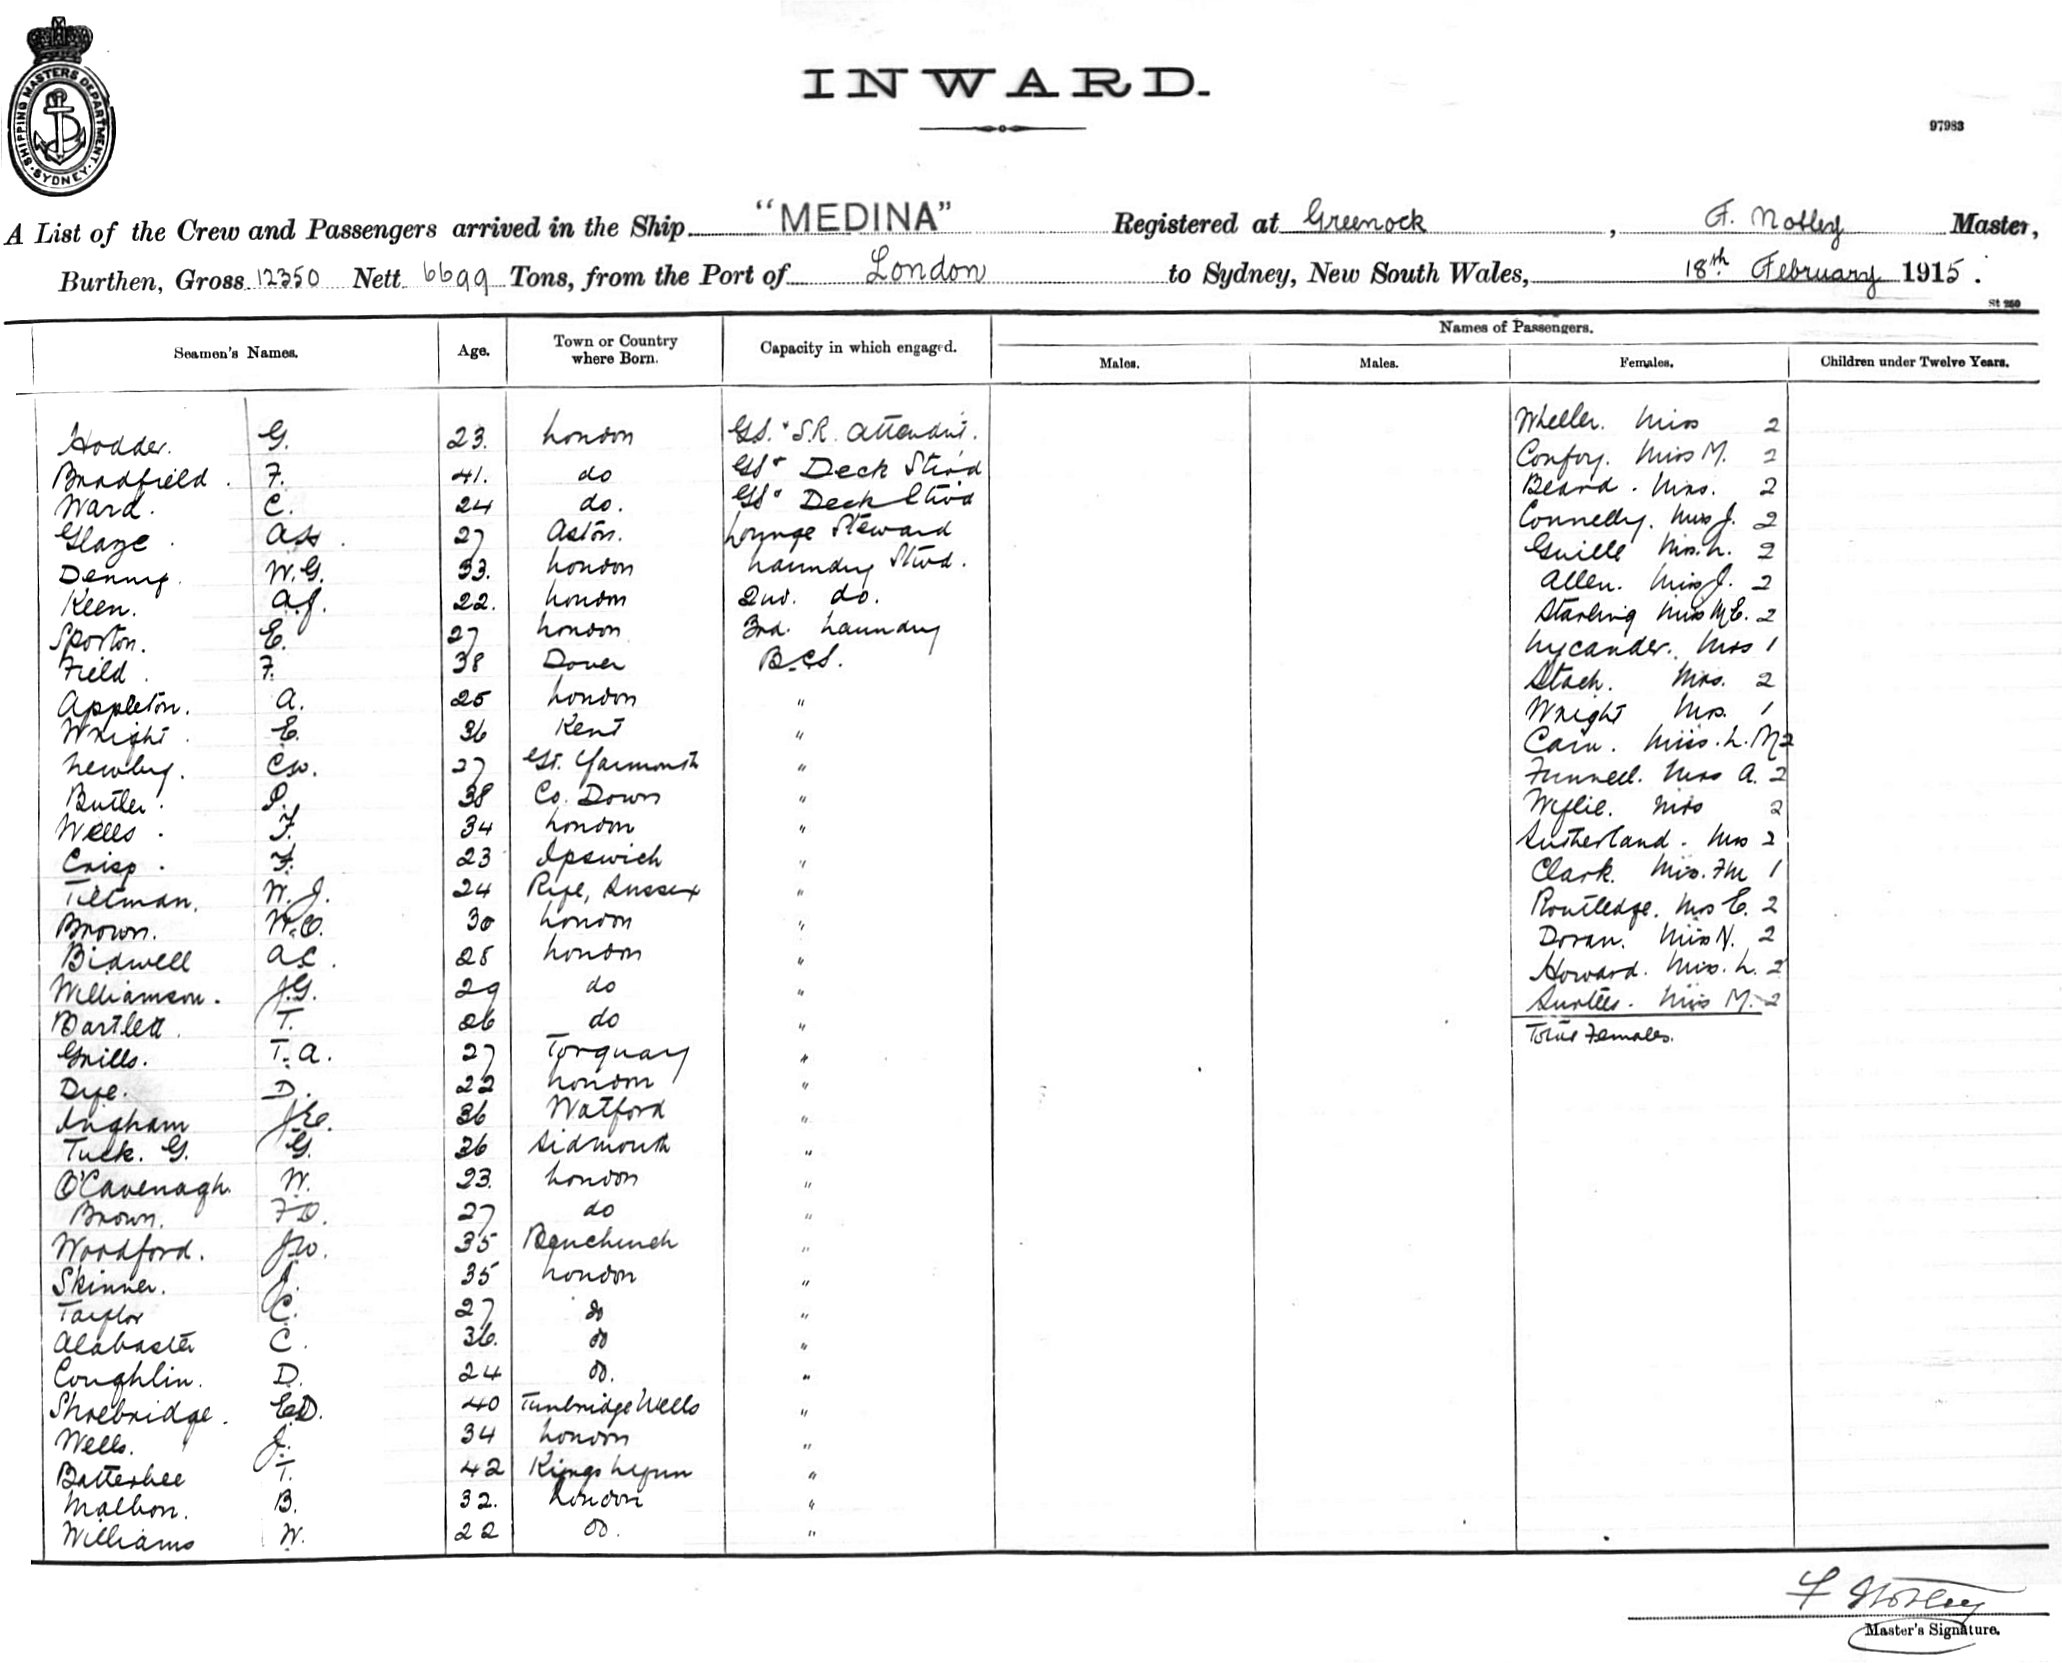 INWARD.
97983
SHIPPING MASTERS DEPARTMENT
SYDNEY
A List of the Crew and Passengers arrived in the Ship "MEDINA" Registered at Greenock, F. Notley Master,
Burthen, Gross 12350 Nett 6699 Tons, from the Port of London to Sydney, New South Wales, 18th February 1915.
St 260
Seamen's Names. Age. Town or Country where Born. Capacity in which engaged. Names of Passengers.
Males. Males. Females. Children under Twelve Years.
Hodder. G. 23. London S.R. Attendant. Wheeler. Miss 2
Bradfield. F. 41. do Deck Stwd Confoy. Miss M. 2
Ward. C. 24 do. Deck Stwd Beard. Mrs. 2
Glaze. 27 Aston. Lounge Steward Connelly. Miss J. 2
Denny. W.G. 33. London Laundry Stwd. Guille L. 2
Keen. A.J. 22. London 2nd. do. Allen. Miss J. 2
Sporton. E. 27 London 3rd. Laundry Starling Miss M.E. 2
Field. F. 38 Dover B.C.S. Lycander. 1
Appleton. A. 25 London " Stach. Mrs. 2
Wright. E. 36 Kent " Wright Mrs. 1
Newby. C.W. 27 Gt. Yarmouth " Cain. Miss. L. M 2
Butler. P. 38 Co. Down " Funnell. A. 2
Wells. F. 34 London " Wyllie. 2
Crisp. F. 23 Ipswich " Sutherland. 2
Tiltman. W.J. 24 Ripe, Sussex " Clark. 1
Brown. W.O. 30 London " Routledge. E. 2
Bidwell A.C. 28 London " Doran. Miss N. 2
Williamson. J.G. 29 do " Howard. L. 2
Bartlett. T. 26 do " Surtees. Miss M. 2
Grills. T.A. 27 Torquay " Total Females.
Dye. D. 22 London "
Ingham J.E. 36 Watford "
Tuck. G. G. 26 Sidmouth "
O'Cavenagh. W. 23. London "
Brown. F.O. 27 do "
Woodford. J.W. 35 "
Skinner. J. 35 London "
Taylor C. 27 do "
Alabaster C. 36. do "
Coughlin. D. 24 do. "
Shoebridge. E.D. 40 Tunbridge Wells "
Wells. J. 34 London "
Batterbee T. 42 Kings Lynn "
Malbon. B. 32. London "
Williams W. 22 do. "
F Notley
Master's Signature.